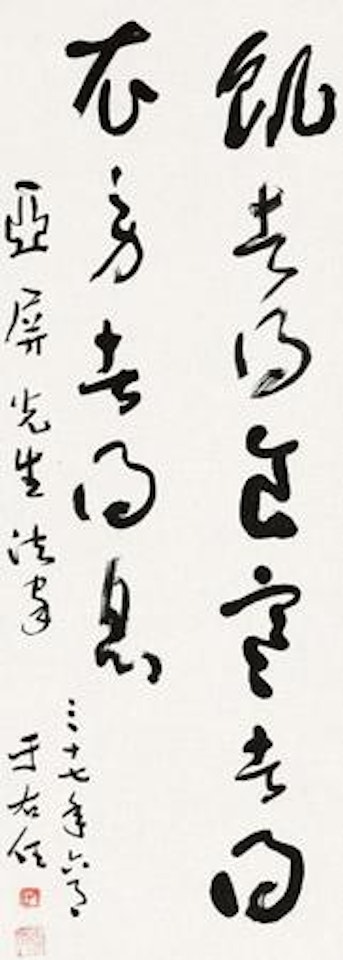 飢者得食寒者得
衣勞者得息
亞屏先生法家
三十七年六月
于右任